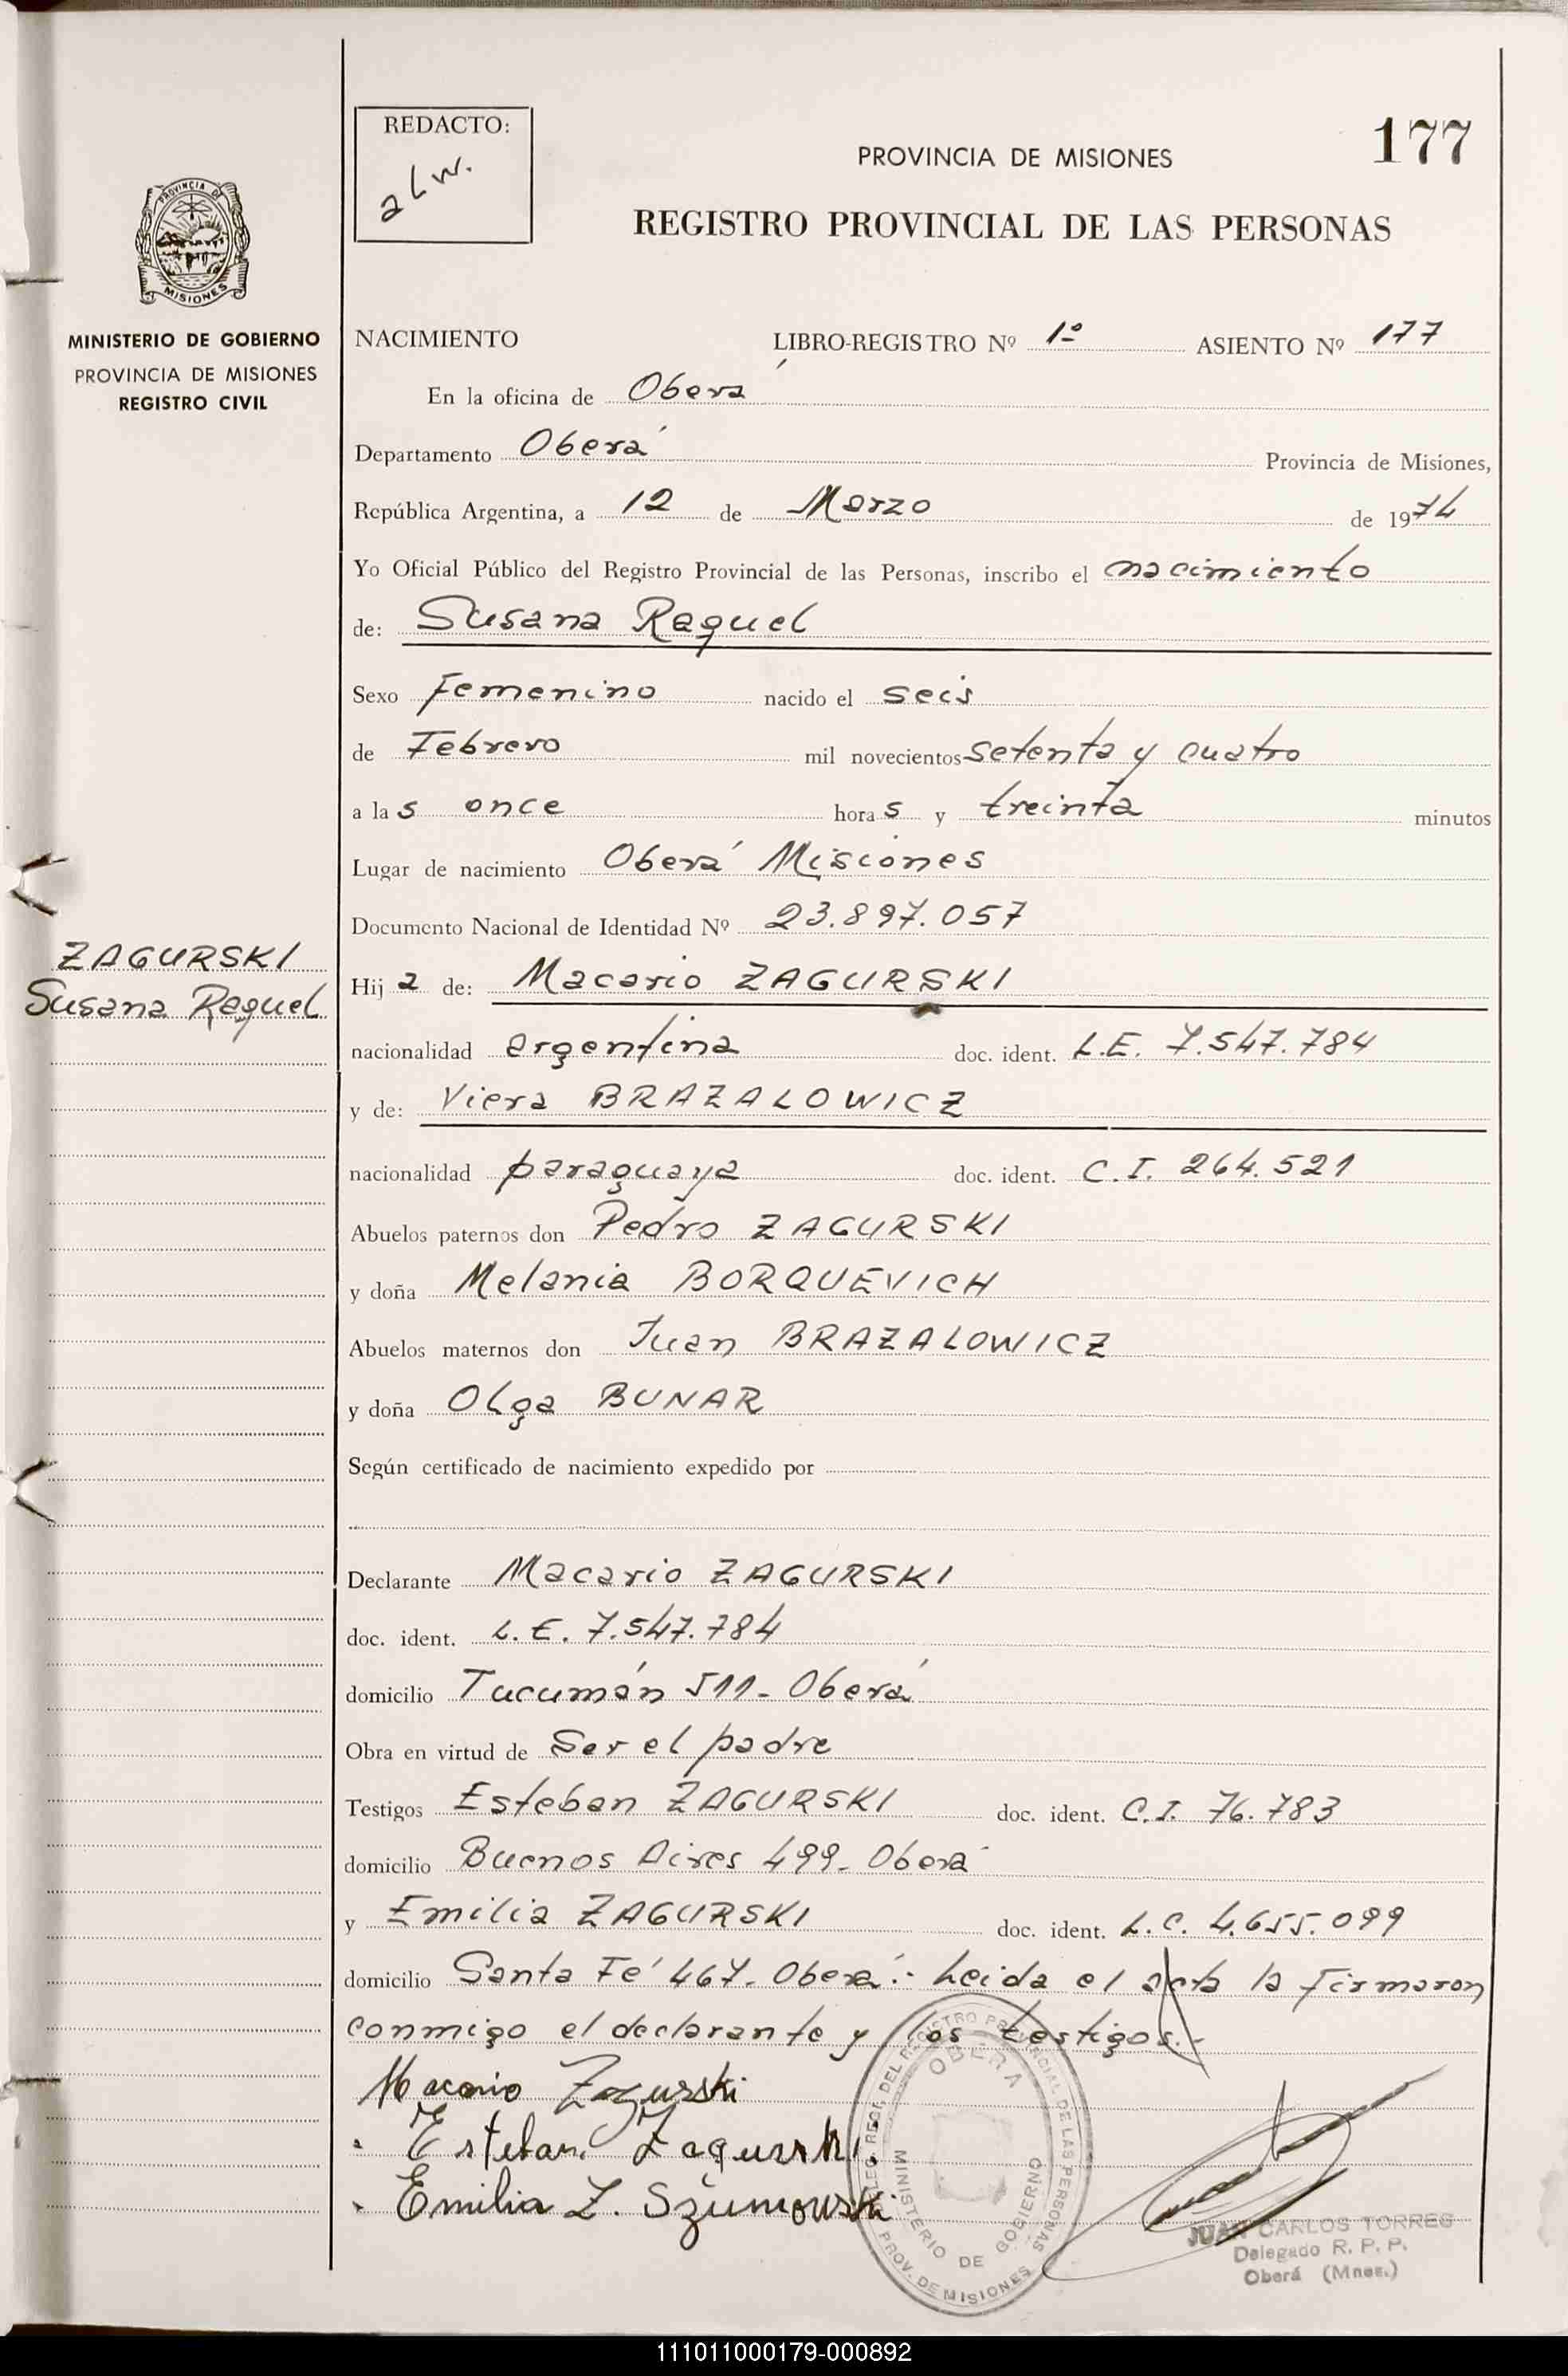 REDACTO:
alw.
177
PROVINCIA DE MISIONES
REGISTRO PROVINCIAL DE LAS PERSONAS
PROVINCIA DE
MISIONES
MINISTERIO DE GOBIERNO
PROVINCIA DE MISIONES
REGISTRO CIVIL
NACIMIENTO LIBRO-REGISTRO Nº 1º ASIENTO Nº 177
En la oficina de Oberá
Departamento Oberá Provincia de Misiones,
República Argentina, a 12 de Marzo de 1974
Yo Oficial Público del Registro Provincial de las Personas, inscribo el nacimiento
de: Susana Raquel
Sexo Femenino nacido el seis
de Febrero mil novecientos setenta y cuatro
a las once horas y treinta minutos
Lugar de nacimiento Oberá Misiones
Documento Nacional de Identidad Nº 23.897.057
ZAGURSKI
Susana Raquel
Hija de: Macario ZAGURSKI
nacionalidad argentina doc. ident. L.E. 7.547.784
y de: Viera BRAZALOWICZ
nacionalidad paraguaya doc. ident. C.I. 264.521
Abuelos paternos don Pedro ZAGURSKI
y doña Melania BORQUEVICH
Abuelos maternos don Juan BRAZALOWICZ
y doña Olga BUNAR
Según certificado de nacimiento expedido por
Declarante Macario ZAGURSKI
doc. ident. L.E. 7.547.784
domicilio Tucumán 511- Oberá
Obra en virtud de Ser el padre
Testigos Esteban ZAGURSKI doc. ident. C.I. 76.783
domicilio Buenos Aires 499- Oberá
y Emilia ZAGURSKI doc. ident. L.C. 4.655.099
domicilio Santa Fé 467- Oberá.- Leida el acta la firmaron
conmigo el declarante y los testigos.-
Macario Zagurski
Esteban Zagurski
Emilia Z. Szumowski
DELEG. REGI. DEL REGISTRO PROVINCIAL DE LAS PERSONAS
OBERA
MINISTERIO DE GOBIERNO
PROV. DE MISIONES
JUAN CARLOS TORRES
Delegado R. P. P.
Oberá (Mnes.)
111011000179-000892